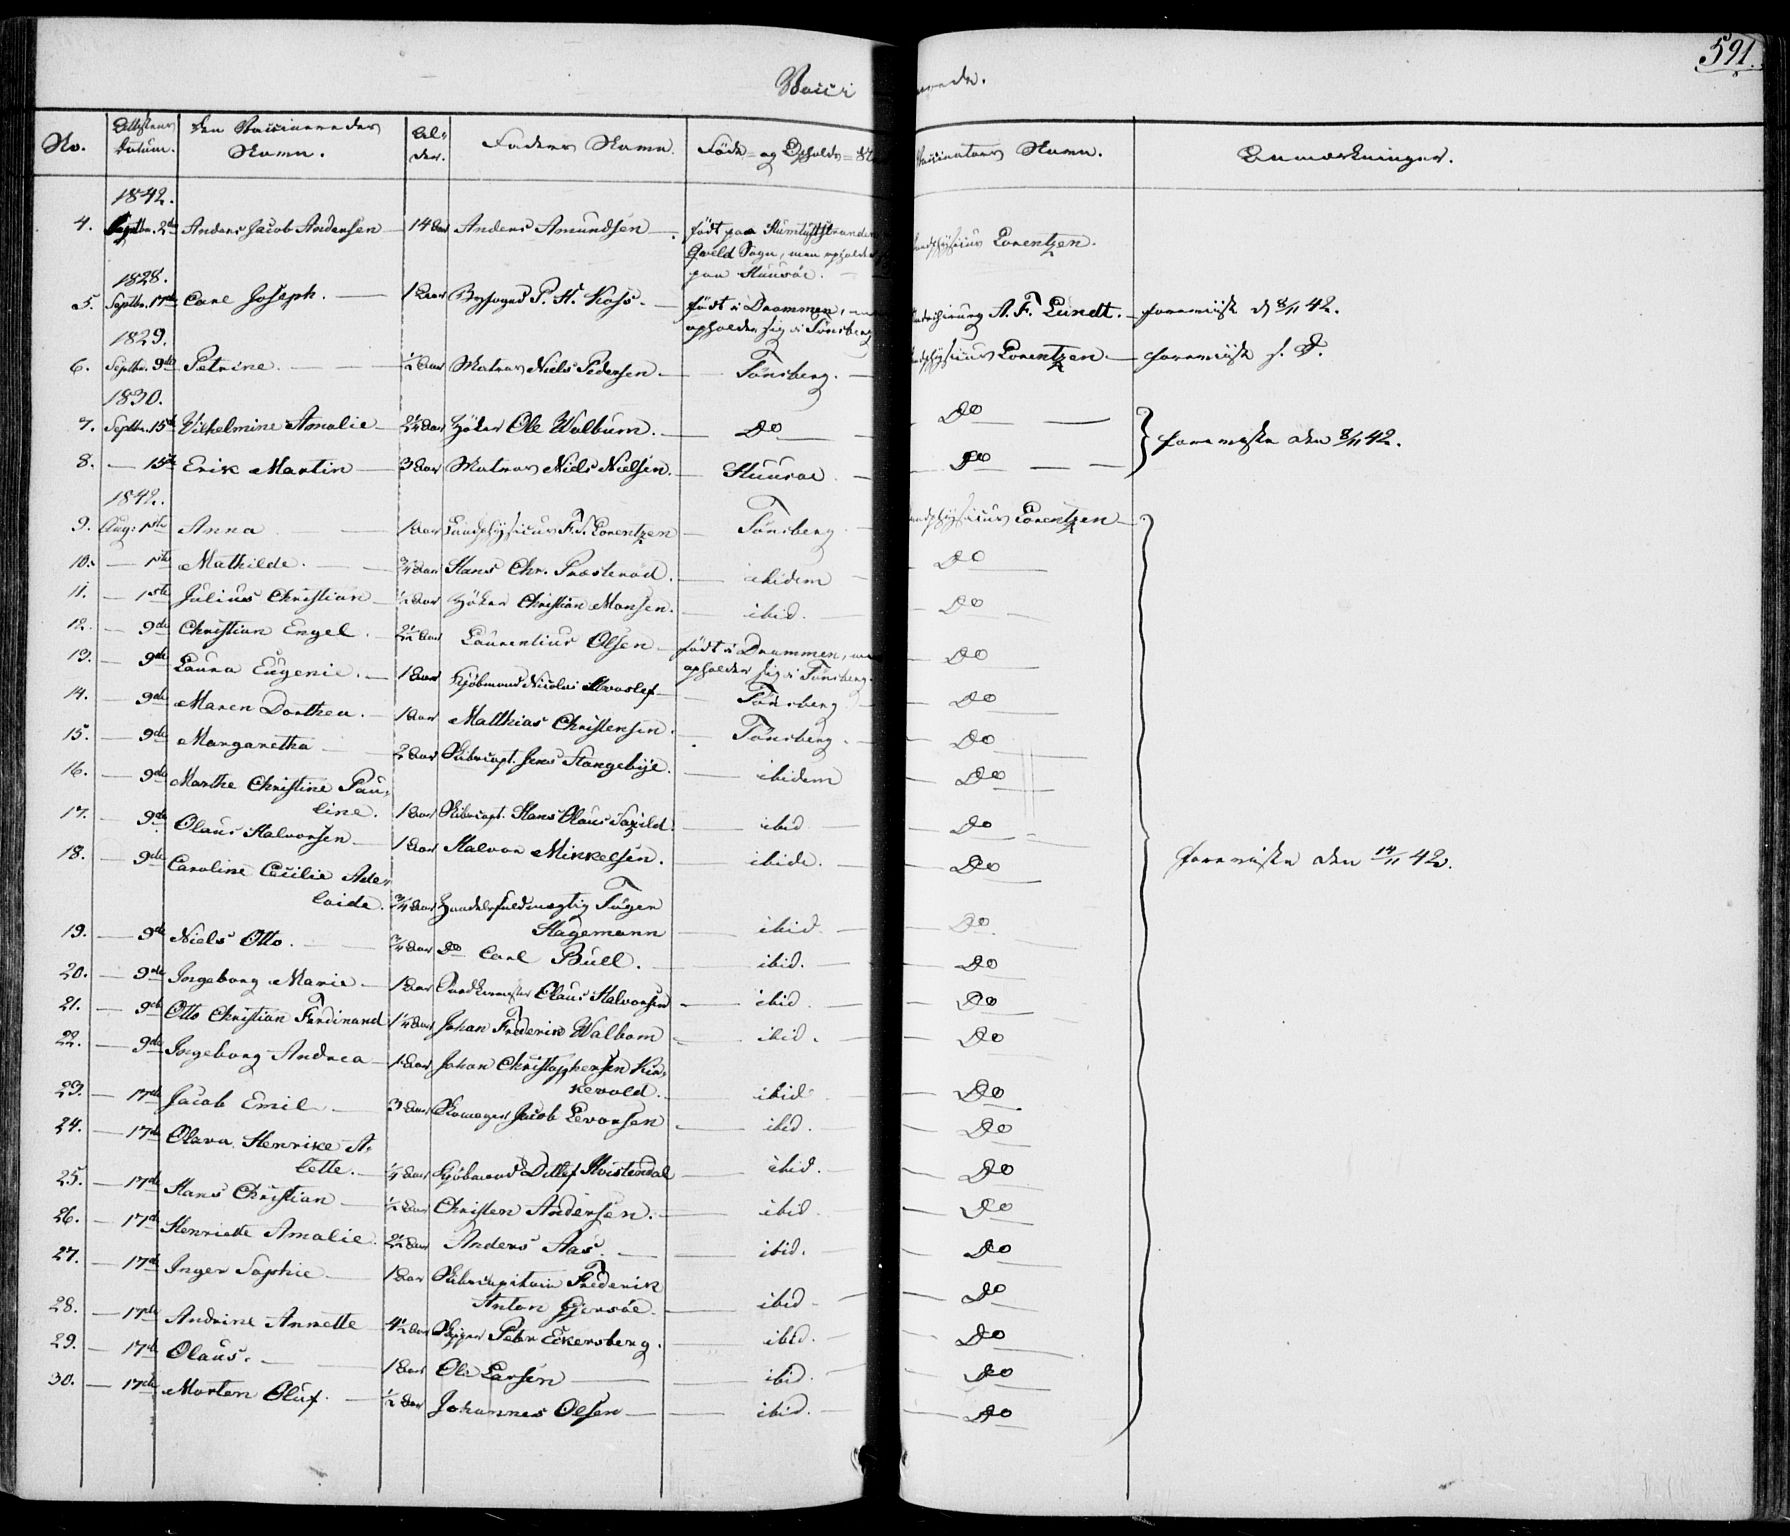 591.
Vacci nerede.
No. Attestens Datum. Den Vaccineredes Navn. Al- der. Faders Navn. Føde- og Opholds-St Vaccinators Navn. Anmærkninger.
1842.
4. Septbr. 2den Anders Jacob Andersen 14 Aar Anders Amundsen født paa Humlut
Sogn, men opholder
paa Huusøe. Landphysicus Lorentzen.
1828.
5. Septbr. 17de Carl Joseph. 1 Aar Byfoged P. H. Koss. født i Drammen,
opholder sig i Tönsberg A. F. Lundt. foreviist d 8/11 42.
1829.
6. Septbr. 9de Petrine. 1/2 Aar Matros Niels Pedersen. Tönsberg. Landphysicus Lorentzen foreviist s. D.
1830.
7. Septbr. 15de Vilhelmine Amalie 2 1/4 Aar Høker Ole Walbum. Do Do
8. 15de Erik Martin 3 Aar Matros Niels Nielsen. Huusøe. Do foreviste den 8/11 42.
1842.
9. Aug: 1ste Anna 1 Aar Landphysicus F. S. Lorentzen Tönsberg Landphysicus Lorentzen
10. 1ste Mathilde. 3/4 Aar Hans Chr. Præsterød. ibidem Do
11. 1ste Julius Christian 1/2 Aar Høker Christian Monsen. ibid. Do
12. 9de Christian Engel. 2 1/2 Aar Laurentius Olsen født i Drammen, men
opholder sig i Tönsberg. Do
13. 9de Laura Eugenie. 1 Aar Kjøbmand Nicolai Hvoslef Tönsberg Do
14. 9de Maren Dorthea. 1 Aar Matthias Christensen. Tönsberg. Do
15. 9de Margaretha 2 Aar Skibscapt. Jens Stangebÿe. ibidem Do
16. 9de Marthe Christine Pau-
line. 1 Aar Skibscapt. Hans Olaus Saxild. ibid Do
17. 9de Olaus Halvorsen 1 Aar Halvor Mikkelsen. ibide. Do
foreviste den 14/11 42.
18. 9de Caroline Cecilie Ade-
laide. 3/4 Aar Handelsfuldmægtig Töger
Hagemann ibid. Do
19. 9de Niels Otto. 3/4 Aar do Carl Bull. ibid. Do
20. 9de Ingeborg Marie 1 Aar Olaus Halvorsen ibid. Do
21. 9de Otto Christian Ferdinand 1 1/4 Aar Johan Frederik Walbom ibid. Do
22. 9de Ingeborg Andrea 1 Aar Johan Christophersen Kir-
kevold. ibid. Do
23. 17de Jacob Emil 3 Aar Skomager Jacob Levorsen ibid. Do
24. 17de Olava Henrike A-
lette. 1/4 Aar Kjøbmand Ditlef Kvistendal ibid. Do
25. 17de Hans Christian 1/2 Aar Christen Andersen. ibid. Do
26. 17de Henriette Amalie. 2 1/2 Aar Anders Aas. ibid. Do
27. 17de Inger Sophie 1 Aar Skibscapitain Frederik
Anton Gjersøe. ibid Do
28. 17de Andrine Annette 4 1/2 Aar Skipper Peter Eckersberg. ibid. Do
29. 17de Olaus. 1 Aar Ole Larsen ibid. Do
30. 17de Morten Oluf. 1/2 Aar Johannes Olsen ibid. Do